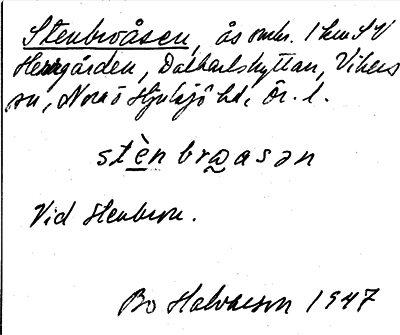 Stenbroåsen, ås omkr. 1 km SV
Herrgården, Dalkarlshyttan, Vikers
sn, Nora o Hjulsjö bd, Ör. l.
stèn brɷasən
Vid Stenbron.
Bo Halvarson 1947